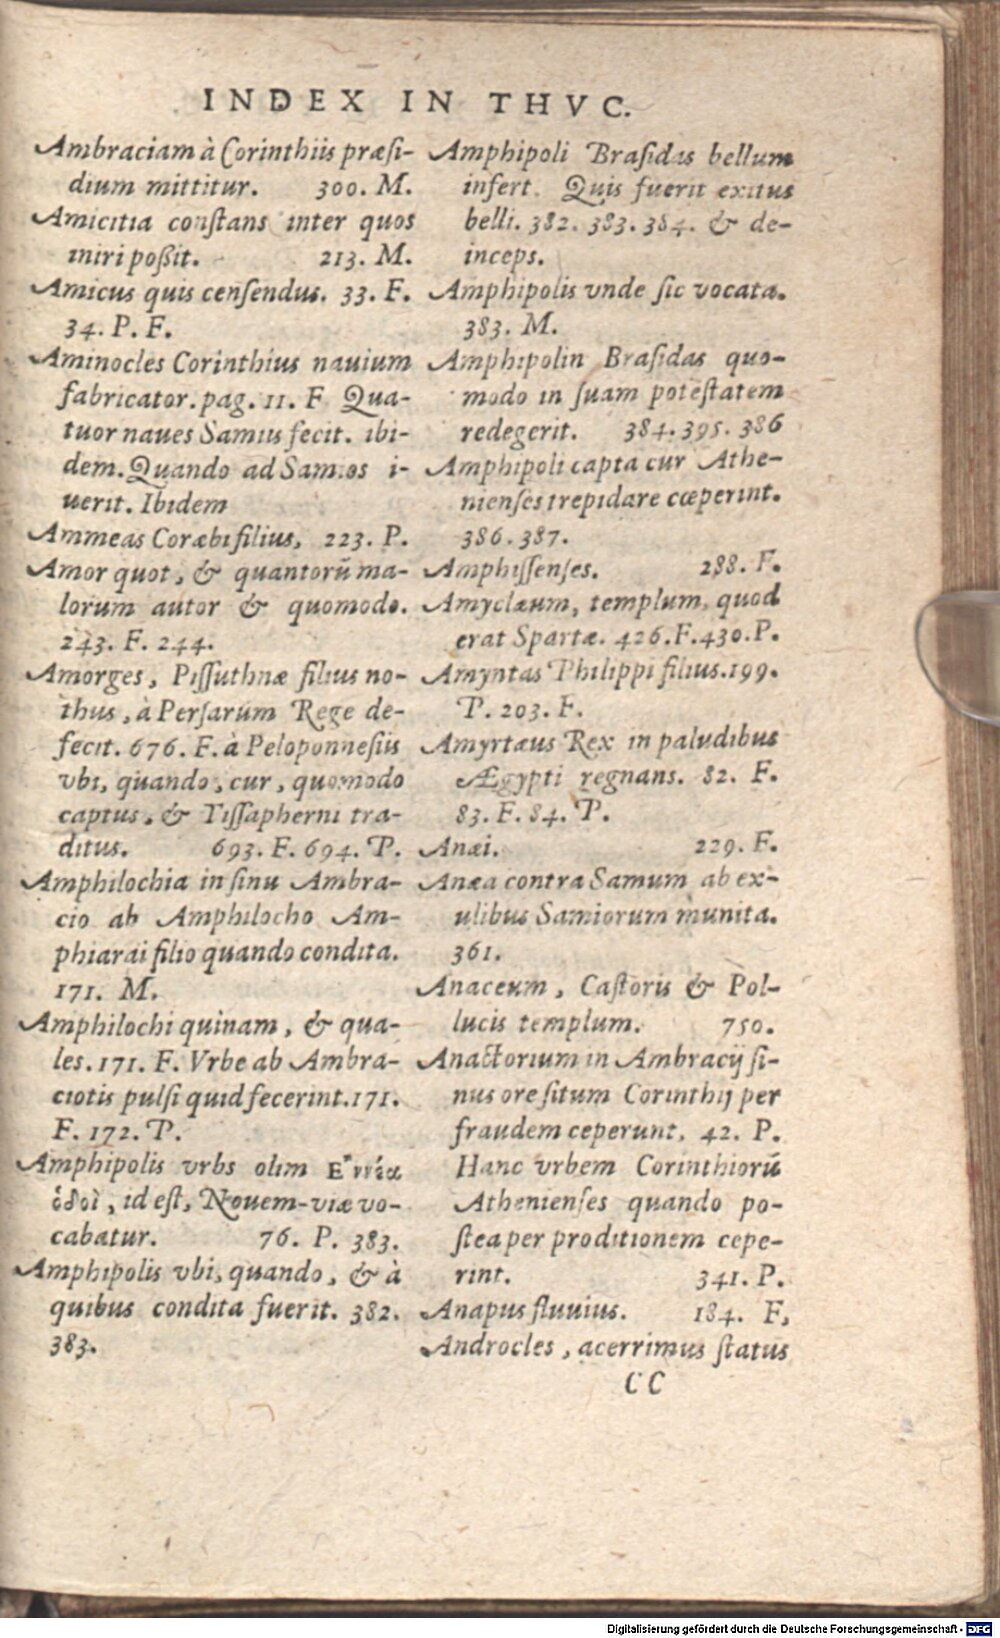 INDEX IN THVC.
Ambraciam à Corinthiis præſi-
dium mittitur. 300. M.
Amicitia conſtans inter quos
iniri poßit. 213. M.
Amicus quis cenſendus. 33. F.
34. P. F.
Aminocles Corinthius nauium
fabricator. pag. 11. F Qua-
tuor naues Samiis fecit. ibi-
dem. Quando ad Samios i-
uerit. Ibidem
Ammeas Coræbi filius, 223. P.
Amor quot, & quantorū ma-
lorum autor & quomodo.
243. F. 244.
Amorges, Piſſuthnæ filius no-
thus, à Perſarum Rege de-
fecit. 676. F. à Peloponneſiis
vbi, quando, cur, quomodo
captus, & Tiſſapherni tra-
ditus. 693. F. 694. P.
Amphilochia in ſinu Ambra-
cio ab Amphilocho Am-
phiarai filio quando condita.
171. M.
Amphilochi quinam, & qua-
les. 171. F. Vrbe ab Ambra-
ciotis pulſi quid fecerint. 171.
F. 172. P.
Amphipolis vrbs olim Ε῎ννέα
ὁδοὶ, id eſt, Nouem-viæ vo-
cabatur. 76. P. 383.
Amphipolis vbi, quando, & à
quibus condita fuerit. 382.
383.
Amphipoli Braſidas bellum
infert. Quis fuerit exitus
belli. 382. 383. 384. & de-
inceps.
Amphipolis vnde ſic vocata.
383. M.
Amphipolin Braſidas quo-
modo in ſuam poteſtatem
redegerit. 384. 395. 386
Amphipoli capta cur Athe-
nienſes trepidare cœperint.
386. 387.
Amphiſſenſes. 288. F.
Amyclæum, templum, quod
erat Spartæ. 426. F. 430. P.
Amyntas Philippi filius. 199.
P. 203. F.
Amyrtæus Rex in paludibus
Ægypti regnans. 82. F.
83. F. 84. P.
Anæi. 229. F.
Anæa contra Samum ab ex-
ulibus Samiorum munita.
361.
Anaceum, Caſtoris & Pol-
lucis templum. 750.
Anactorium in Ambracij ſi-
nus ore ſitum Corinthij per
fraudem ceperunt, 42. P.
Hanc vrbem Corinthiorū
Athenienſes quando po-
ſtea per proditionem cepe-
rint. 341. P.
Anapus fluuius. 184. F,
Androcles, acerrimus ſtatus
CC
Digitalisierung gefördert durch die Deutsche Forschungsgemeinschaft - DFG